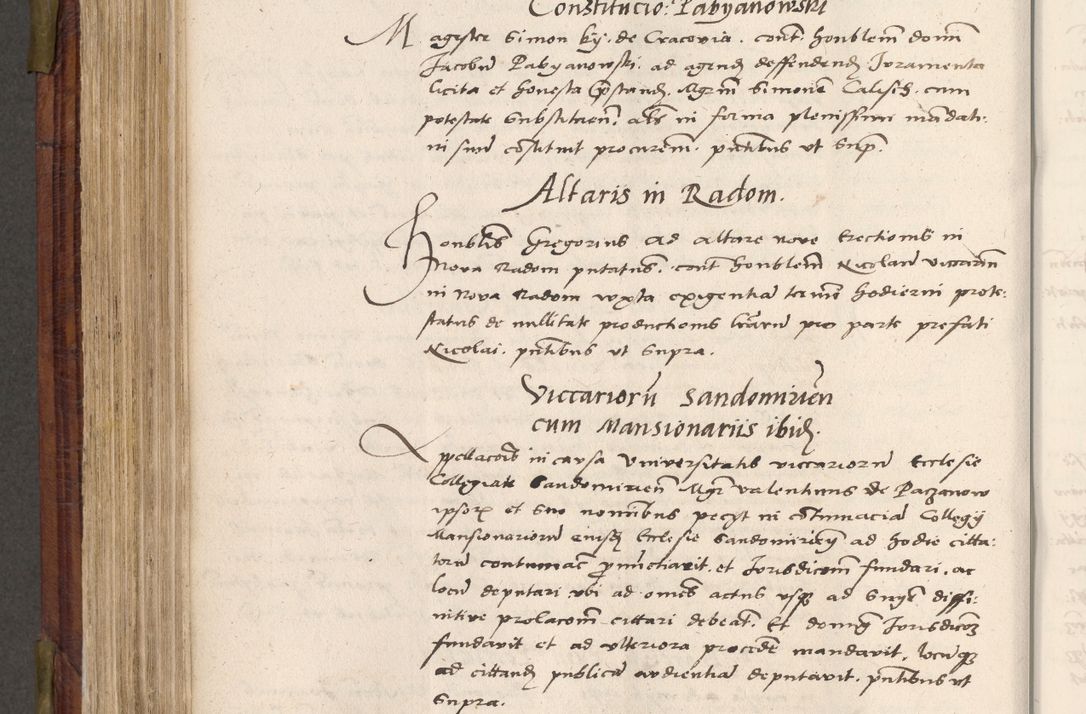 Constitucio: Pabyanowski
Magister Simon ky. de Cracovia. cont. honblem domi
Jacobu Pabyanowski. ad agend deffendend Juramenta
licita et honesta prestand. Mgrm Simone Calisch. cum
potestate substituen, ac in forma plenissimi mandati.
in suu costituit procurem. pntibus ut sup.
Altaris in Radom.
Honblis Gregorius ad altare nove Erectionis in
Nova Radom pntatus. cont honblem Nicolau viccariu
in Nova Radom iuxta exigentia termi hodierni prote:
status de nullitate productionis lraru pro parte prefati
Nicolai. pntibus ut supra.
Viccarioru Sandomirien
cum Mansionariis ibid.
Appellacois in causa Universitatis viccarioru Ecclesie
Collegiate Sandomirien Mgr Valentinus de Paczanow
ipsor et suo nominibus pecyt in cotumacia Collegy
Mansionarioru eiusd Ecclesie Sandomirien ad hodie citta:
toru contumac pronunciavit. et Jurisdicoem fundari. ac
locu deputari ubi ad omes actus usq ad Snym diffi:
nitive prolacom cittari debeat. Et domi Jurisdicoem
fundavit et ad ulteriora procede mandavit. locuq
ad cittand publica audientia deputavit. pntibus ut
supra.